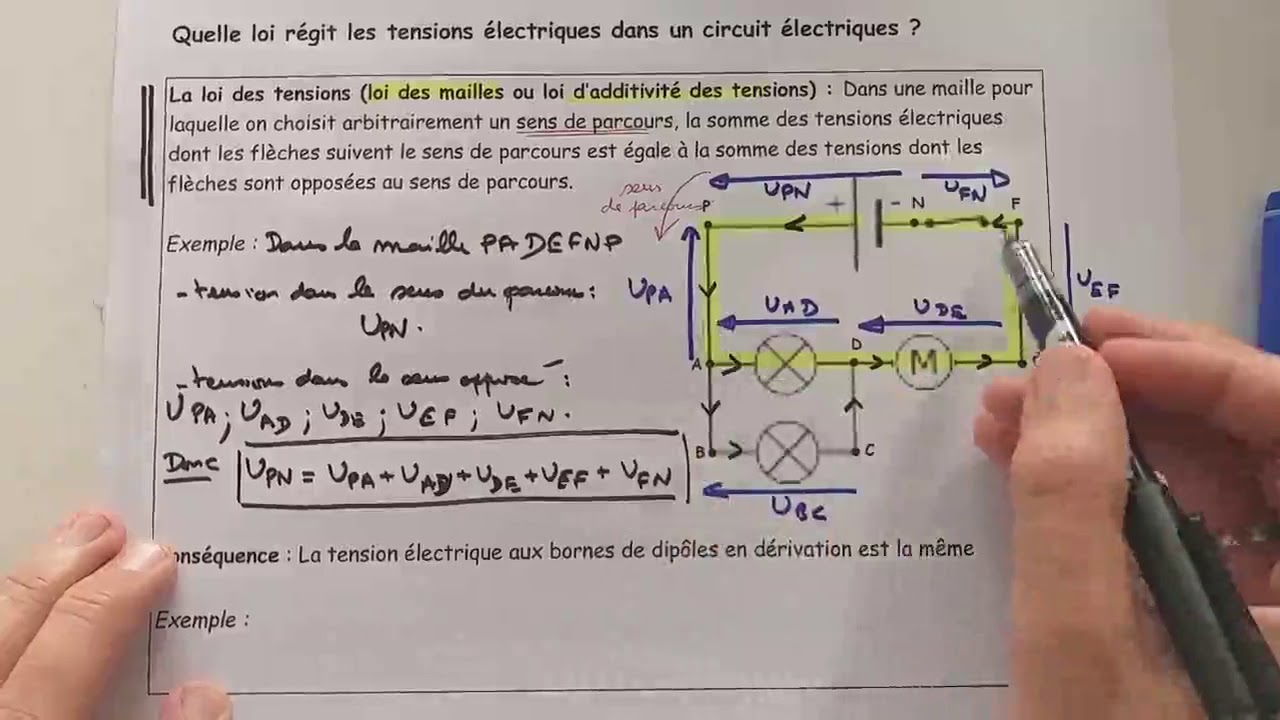 Quelle loi régit les tensions électriques dans un circuit électriques ?
La loi des tensions (loi des mailles ou loi d'additivité des tensions) : Dans une maille pour
laquelle on choisit arbitrairement un sens de parcours, la somme des tensions électriques
dont les flèches suivent le sens de parcours est égale à la somme des tensions dont les
flèches sont opposées au sens de parcours.
sens
de parcours
P
UPN
+
-
N
UFN
F
Exemple : Dans la maille PADEFNP
- tension dans le sens du parcours :
UPN.
UPA
UAD
UDE
UEF
A
D
M
- tensions dans le sens opposé :
UPA ; UAD ; UDE ; UEF ; UFN.
B
C
Donc
UPN = UPA + UAD + UDE + UEF + UFN
UBC
onséquence : La tension électrique aux bornes de dipôles en dérivation est la même
Exemple :